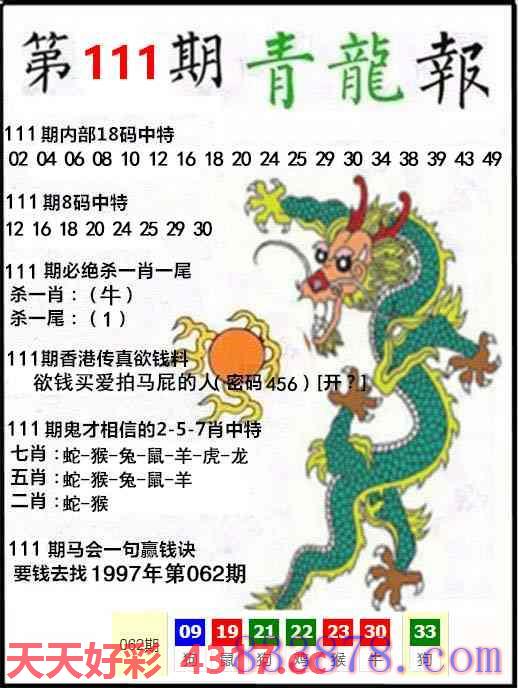 第111期青龍報
111期内部18码中特
02 04 06 08 10 12 16 18 20 24 25 29 30 34 38 39 43 49
111期8码中特
12 16 18 20 24 25 29 30
111期必绝杀一肖一尾
杀一肖：（牛）
杀一尾：（1）
111期香港传真欲钱料
欲钱买爱拍马屁的人(密码456)[开？]
111期鬼才相信的2-5-7肖中特
七肖：蛇-猴-兔-鼠-羊-虎-龙
五肖：蛇-猴-兔-鼠-羊
二肖：蛇-猴
111期马会一句赢钱诀
要钱去找1997年第062期
062期 09 19 21 22 23 30 33
狗 鼠 狗 鸡 猴 牛 狗
天天好彩 4337.cc